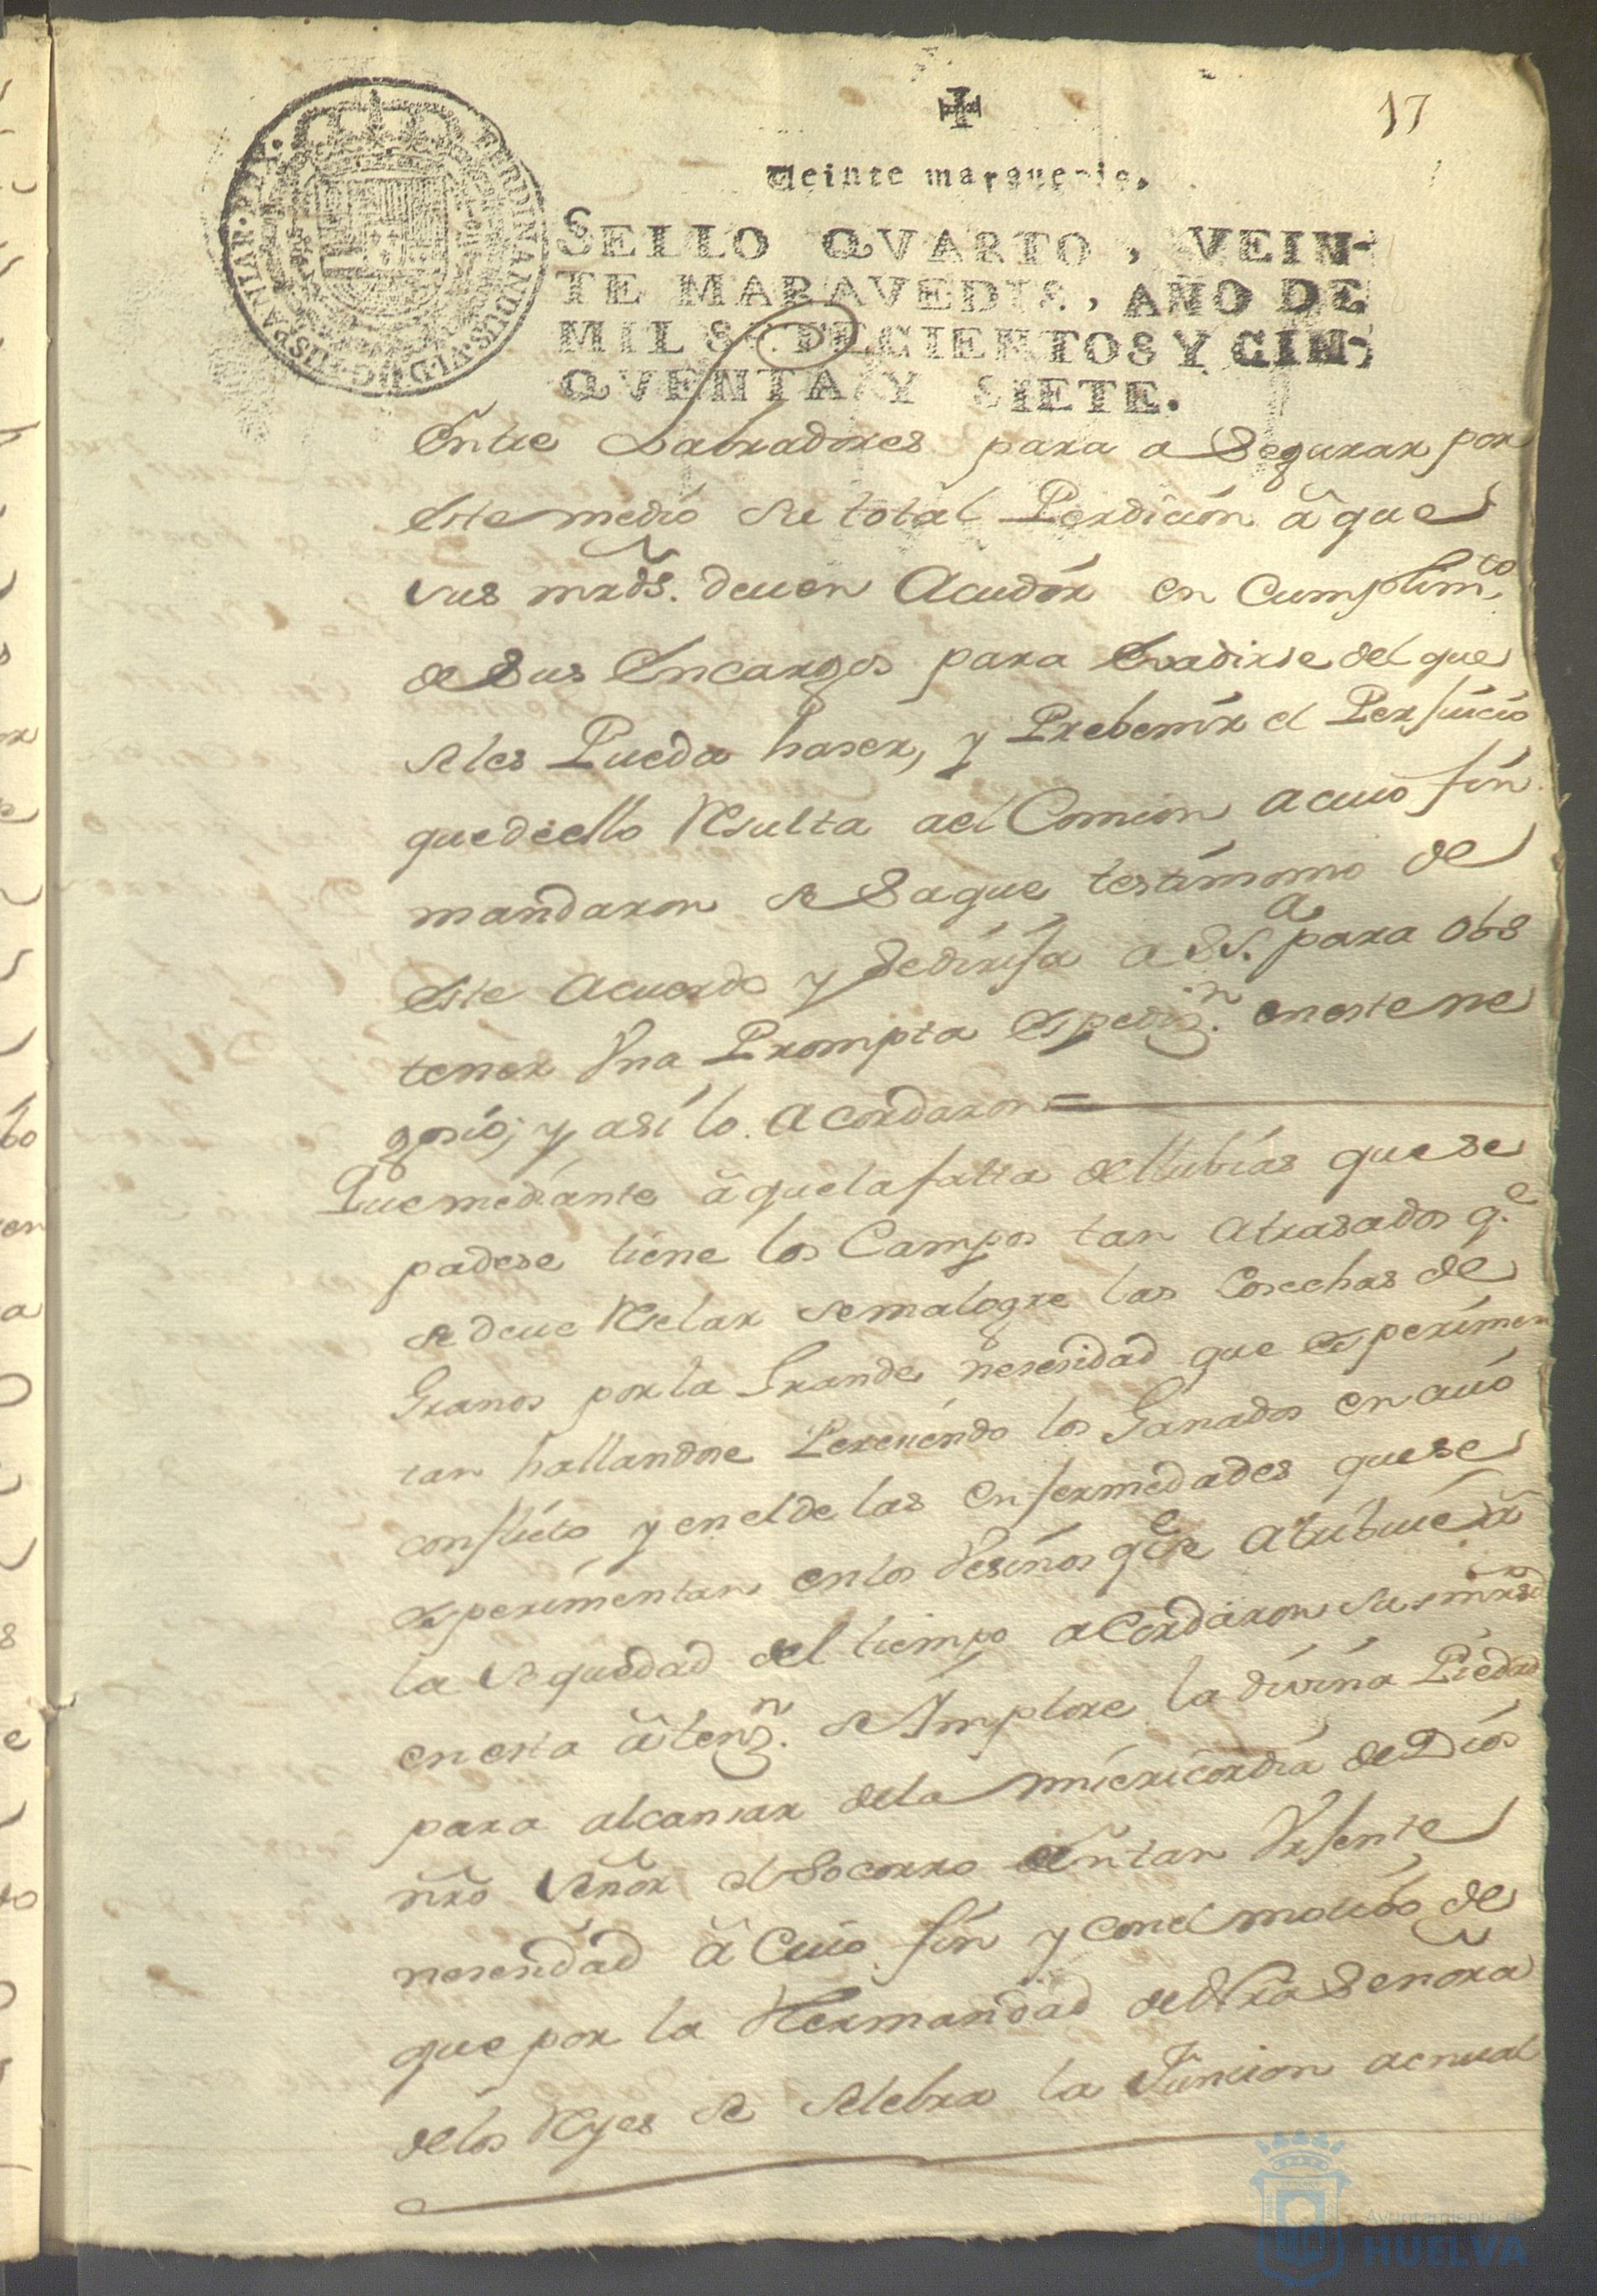 17
Veinte maravedis.
SELLO QVARTO, VEIN-
TE MARAVEDIS, AÑO DE
MIL SETECIENTOS Y CIN-
QVENTA Y SIETE.
FERDINANDUS·VI·D·G·HISPANIAR·REX·
Entre Labradores para a Segurar por
este medio su total Perdicion â que
sus mrds. deuen Acudir en Cumplimto.
de Sus Encargos para Evadirse del que
se les Pueda haser, y Prebenir el Perjuicio
que de ello Resulta a el Comun a cuio fin
mandaron se Saque testimonio de
este Acuerdo y se dirija a S.Sa. para obs
tener Vna Prompta espedizn. en este ne
gosio; y así lo acordaron =
Que mediante â que la falta de llubias que se
padese tiene los Campos tan atrasados q.e
se deue Reselar se malogre las Cosechas de
Granos por la Grande nesesidad que esperimen
tan hallandose Pereciendo los Ganados en cuio
conflicto y en el de las enfermedades que se
esperimentan en los Vesinos q.e se atribuie â
la sequedad del tiempo acordaron sus mrds
en esta âtenzn. se Ymplore la divina Piedad
para alcansar de la misericordia de Dios
nro Señor el Socorro en tan Vrjente
nesesidad â Cuio fin y con el motibo de
que por la Hermandad de Nra Señora
de los Reyes se selebra la Funcion acnual
Ayuntamiento de
HUELVA